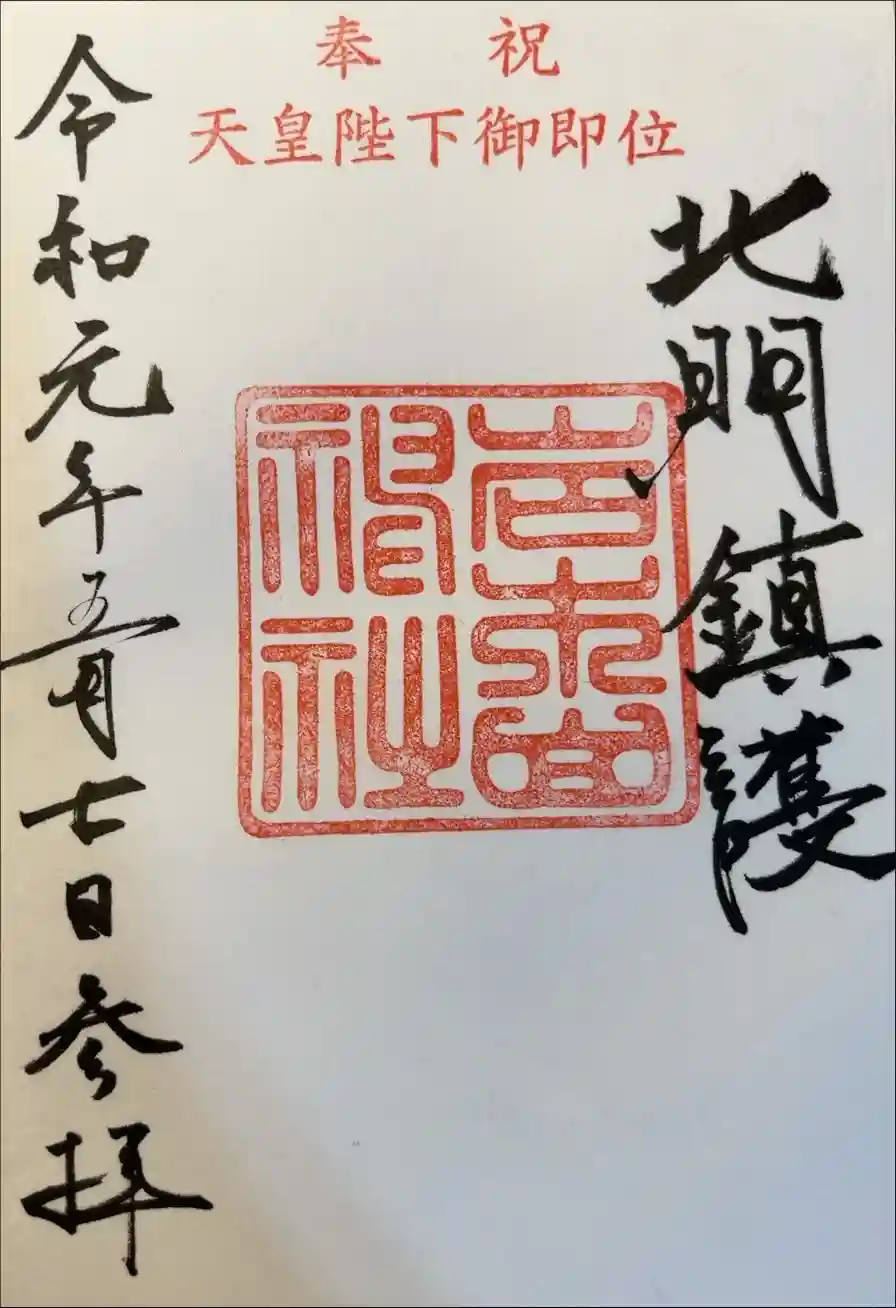 奉祝
天皇陛下御即位
北門鎮護
岩木山
神社
令和元年五月七日参拝